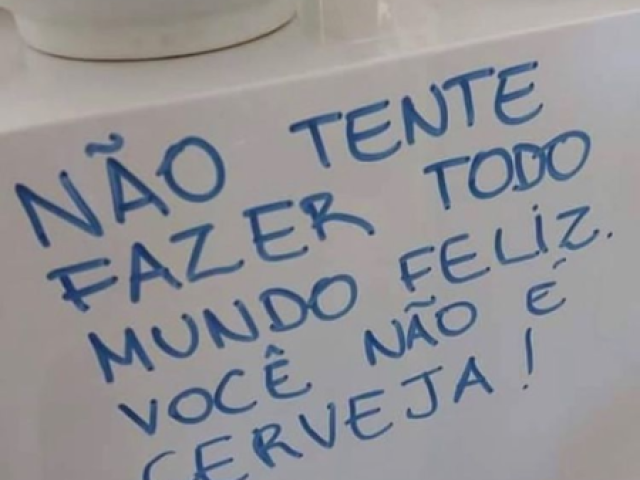 NÃO TENTE
FAZER TODO
MUNDO FELIZ.
VOCÊ NÃO É
CERVEJA!